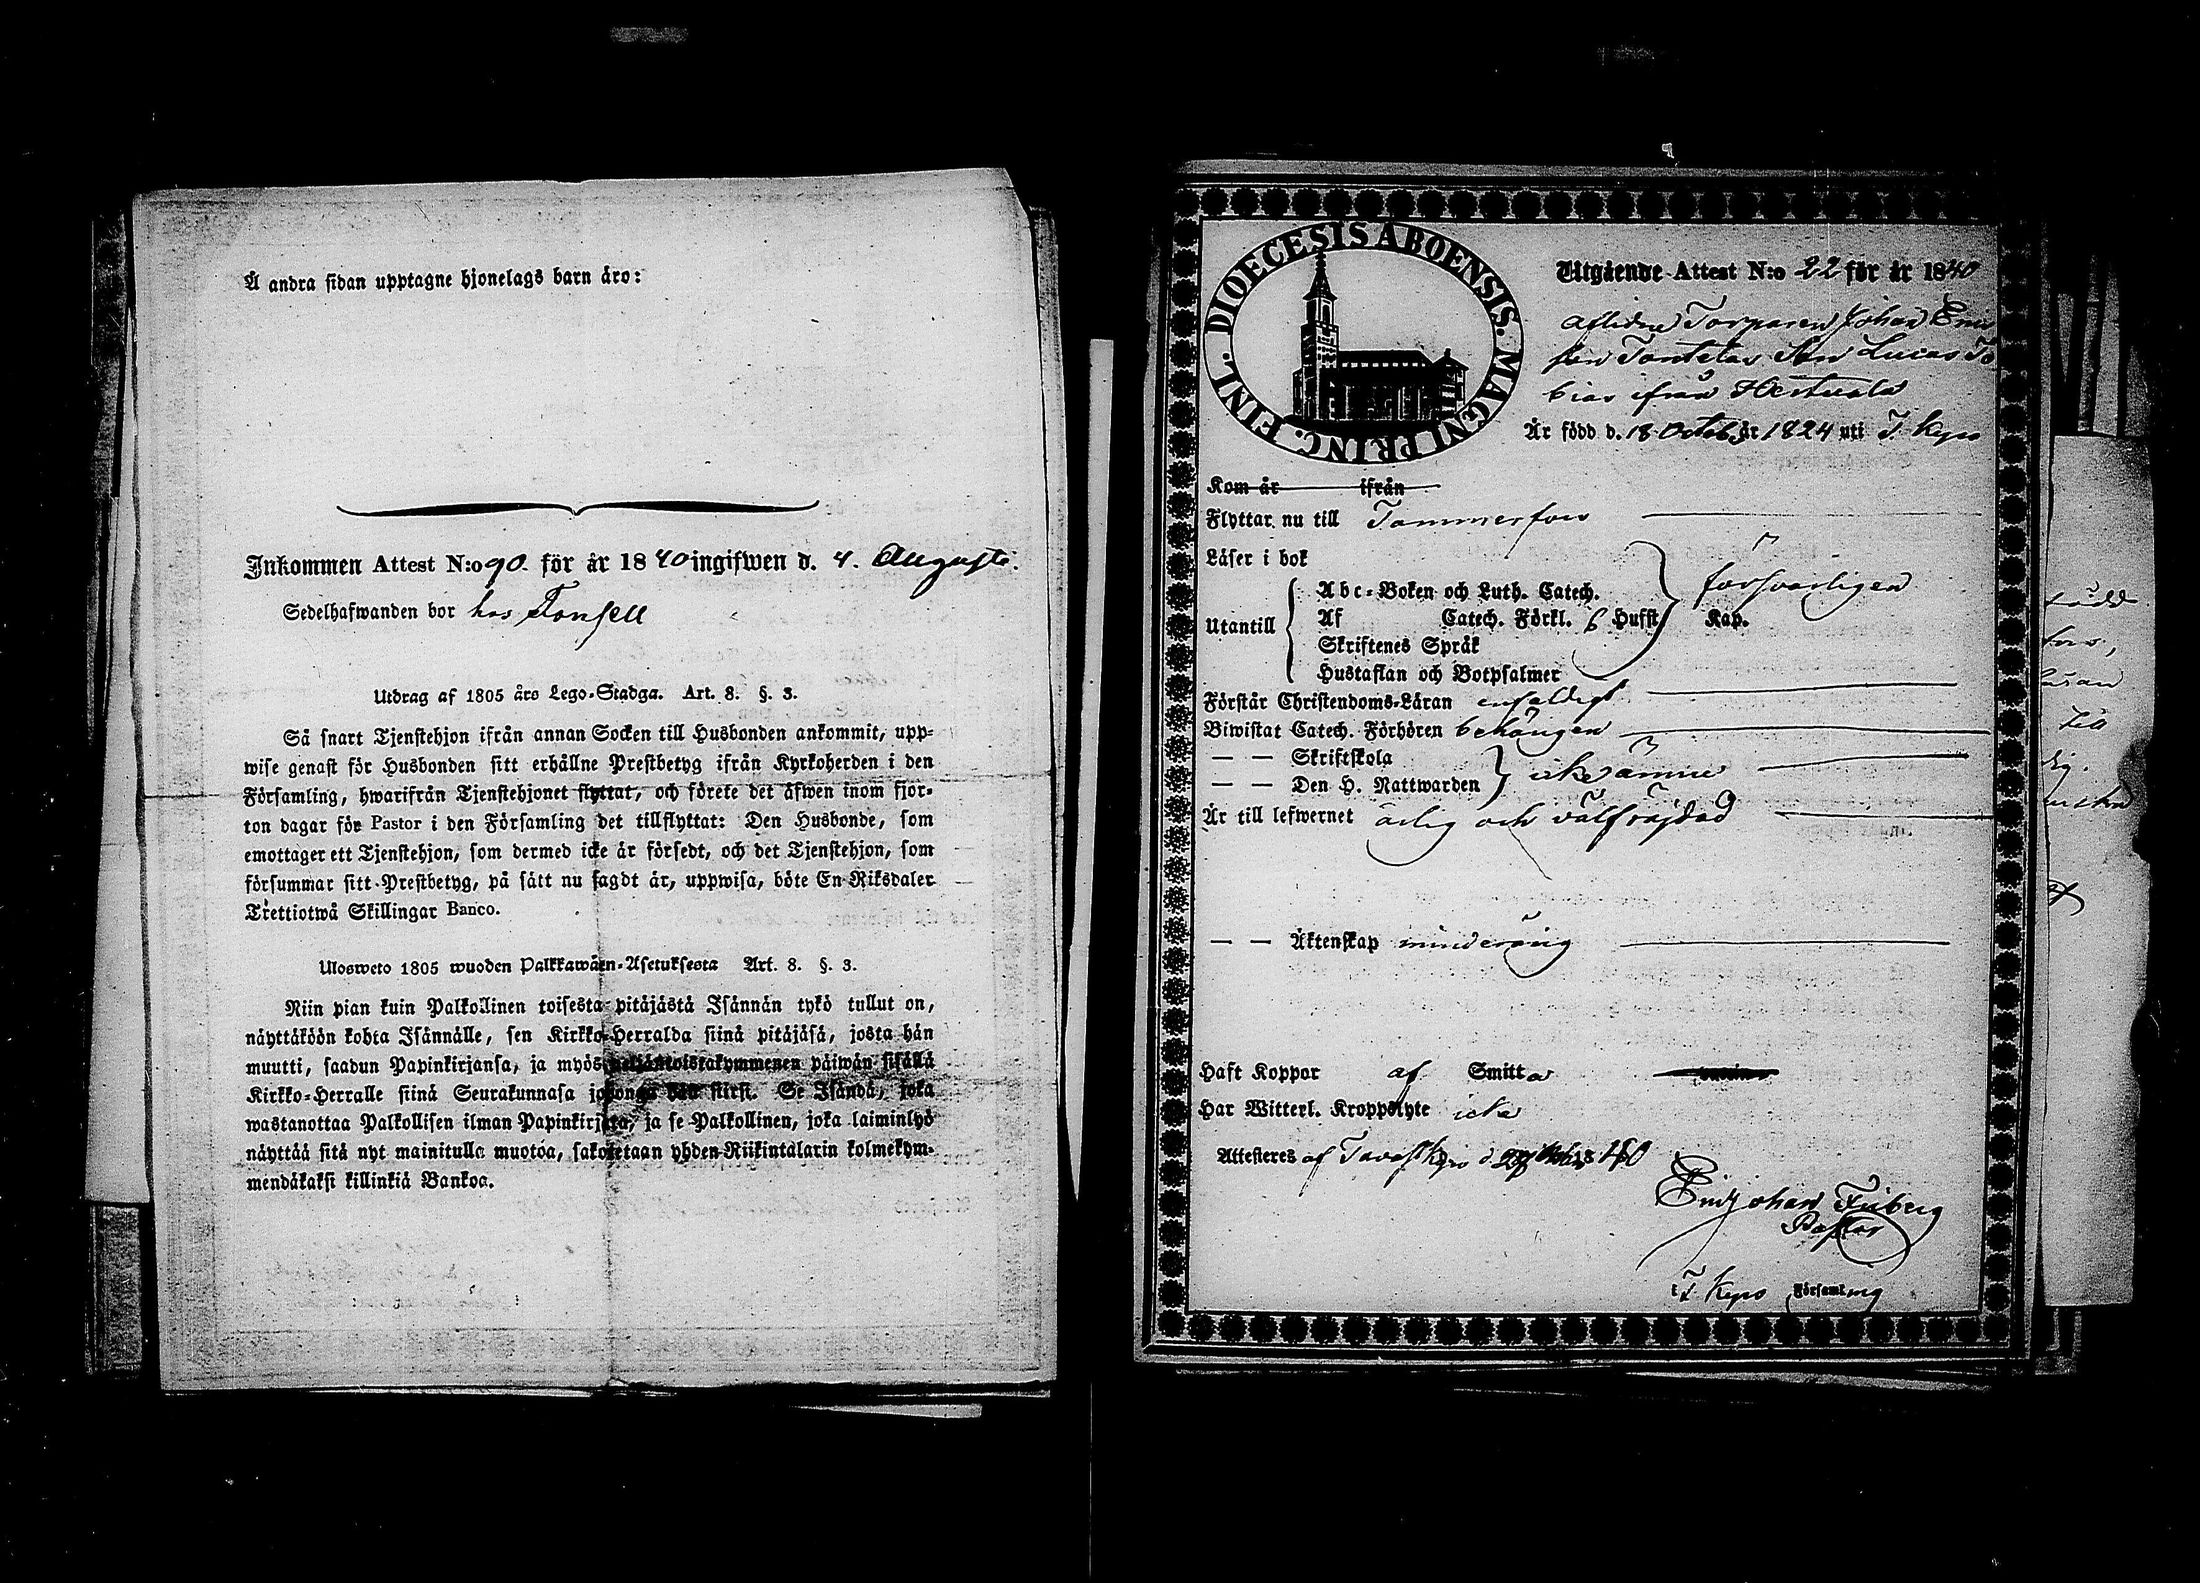 Å andra sidan upptagne hjonelags barn äro:
Inkommen Attest N:o 90. för år 1840 ingifwen d. 4. Augusti.
Sedelhafwanden bor hos Tonsell
Utdrag af 1805 års Lego-Stadga. Art. 8. §. 3.
Så snart Tjenstehjon ifrån annan Socken till Husbonden ankommit, upp=
wise genast för Husbonden sitt erhållne Prestbetyg ifrån Kyrkoherden i den
Församling, hwarifrån Tjenstehjonet flyttat, och förete det äfwen inom fjor=
ton dagar för Pastor i den Församling det tillflyttat: Den Husbonde, som
emottager ett Tjenstehjon, som dermed icke är försedt, och det Tjenstehjon, som
försummar sitt Prestbetyg, på sätt nu sagdt är, uppwisa, böte En Riksdaler
Trettiotwå Skillingar Banco.
Ulosweto 1805 wuoden Palkkawäen-Asetuksesta Art. 8. §. 3.
Niin pian kuin Palkollinen toisesta pitäjästä Isännän tykö tullut on,
näyttäköön kohta Isännälle, sen Kirkko-Herralda siinä pitäjäsä, josta hän
muutti, saadun Papinkirjansa, ja myös neljäntoistakymmenen päiwän sisällä
Kirkko-Herralle siinä Seurakunnasa johonga hän siirsi. Se Isändä, joka
wastanottaa Palkollisen ilman Papinkirjata, ja se Palkollinen, joka laiminlyö
näyttää sitä nyt mainitulla muotoa, sakotetaan yhden Riikintalarin kolmekym=
mendäkaksi killinkiä Bankoa.
DIOECESIS ABOENSIS. MAGNI PRINC. FINL.
Utgående Attest N:o 22 för år 1840
aflidne Torparen Johan Eric
sson Tomtelas Son Lucas To
bias ifrån Hertuala
Är född d. 18 Octob. år 1824 uti T. Kyro
Kom år ifrån
Flyttar nu till Tammerfors
Läser i bok
Utantill
Abc-Boken och Luth. Catech.
försvarligen
Af Catech. Förkl. 6 Hufst Kap.
Skriftenes Språk
Hustaflan och Botpsalmer
Förstår Christendoms-Läran enfaldigt
Biwistat Catech. Förhören behörigen
— — Skriftskola
icke ännu
— — Den H. Nattwarden
Är till lefwernet ärlig och välfräjdad
— — Äktenskap minderårig
Haft Koppor af Smitta
Har Witterl. Kroppslyte icke
Attesteras af Tavastkyro d 1840
Eric Johan Friberg
Pastor
i T. Kyro Församling